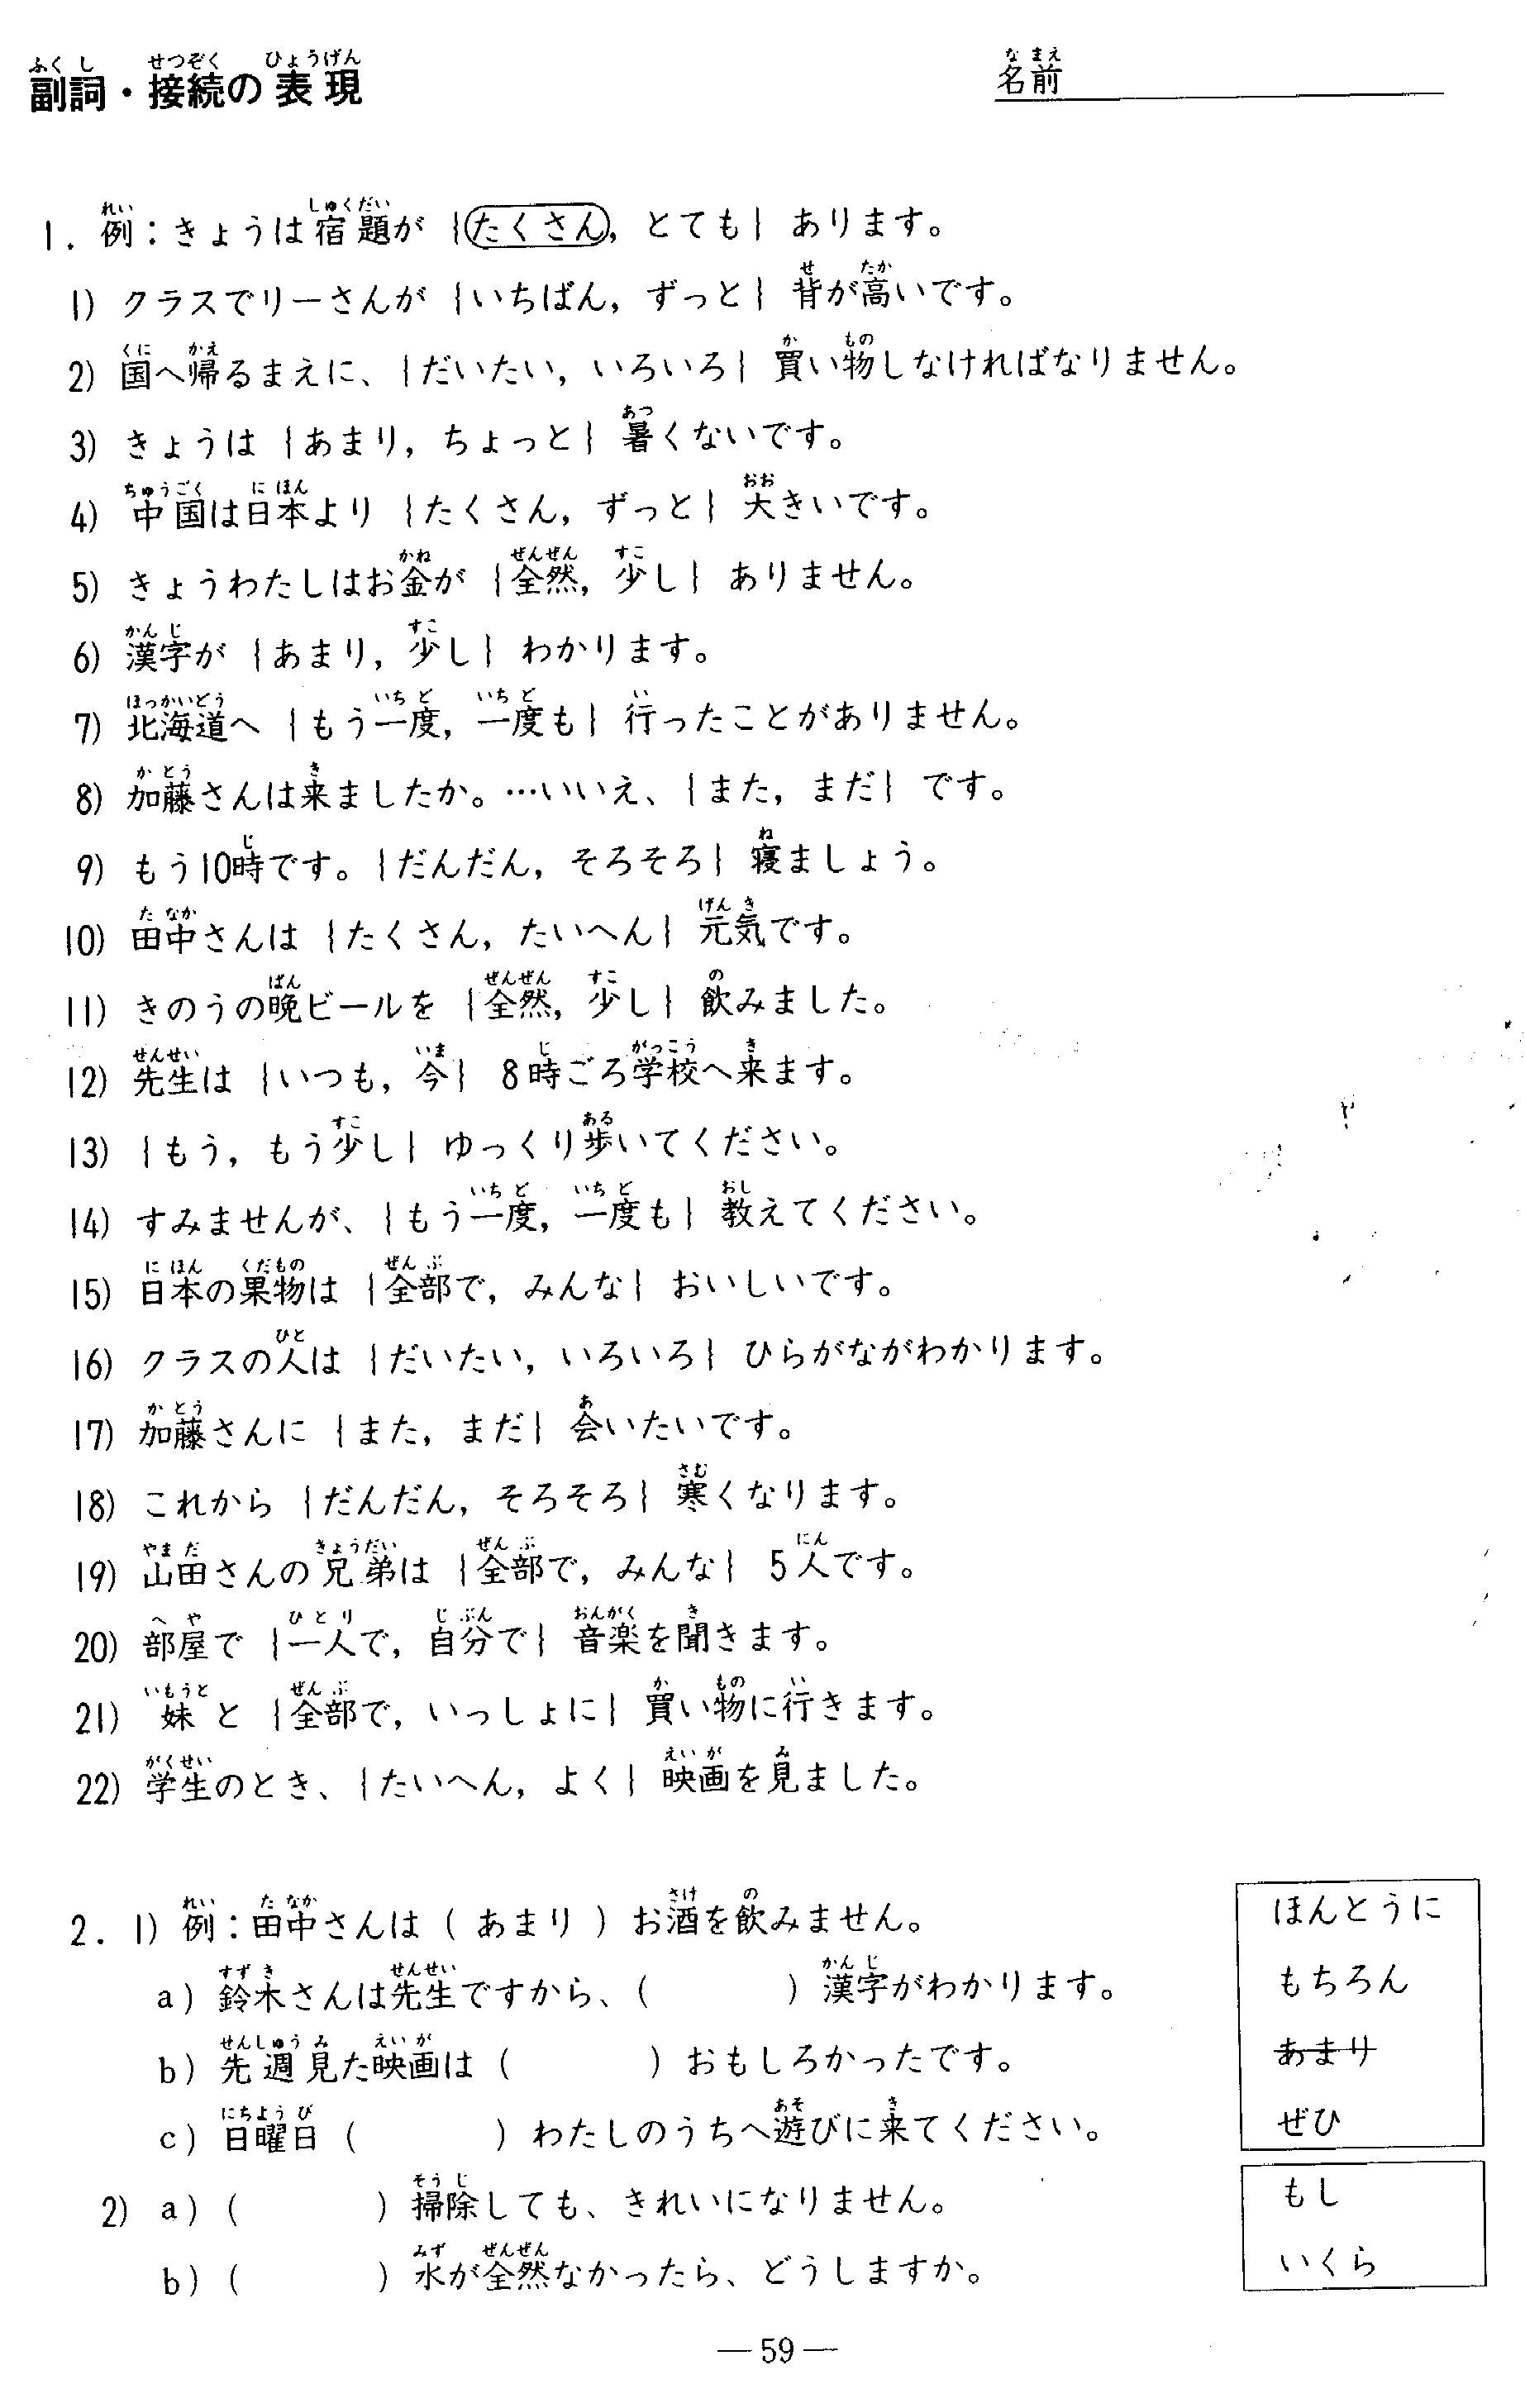 副詞・接続の表現 名前
1. 例：きょうは宿題が {たくさん, とても} あります。
1) クラスでリーさんが {いちばん, ずっと} 背が高いです。
2) 国へ帰るまえに、{だいたい, いろいろ} 買い物しなければなりません。
3) きょうは {あまり, ちょっと} 暑くないです。
4) 中国は日本より {たくさん, ずっと} 大きいです。
5) きょうわたしはお金が {全然, 少し} ありません。
6) 漢字が {あまり, 少し} わかります。
7) 北海道へ {もう一度, 一度も} 行ったことがありません。
8) 加藤さんは来ましたか。…いいえ、{また, まだ} です。
9) もう10時です。{だんだん, そろそろ} 寝ましょう。
10) 田中さんは {たくさん, たいへん} 元気です。
11) きのうの晩ビールを {全然, 少し} 飲みました。
12) 先生は {いつも, 今} 8時ごろ学校へ来ます。
13) {もう, もう少し} ゆっくり歩いてください。
14) すみませんが、{もう一度, 一度も} 教えてください。
15) 日本の果物は {全部で, みんな} おいしいです。
16) クラスの人は {だいたい, いろいろ} ひらがながわかります。
17) 加藤さんに {また, まだ} 会いたいです。
18) これから {だんだん, そろそろ} 寒くなります。
19) 山田さんの兄弟は {全部で, みんな} 5人です。
20) 部屋で {一人で, 自分で} 音楽を聞きます。
21) 妹と {全部で, いっしょに} 買い物に行きます。
22) 学生のとき、{たいへん, よく} 映画を見ました。
2. 1) 例：田中さんは ( あまり ) お酒を飲みません。
a) 鈴木さんは先生ですから、( ) 漢字がわかります。
b) 先週見た映画は ( ) おもしろかったです。
c) 日曜日 ( ) わたしのうちへ遊びに来てください。
ほんとうに
もちろん
あまり
ぜひ
2) a) ( ) 掃除しても、きれいになりません。
b) ( ) 水が全然なかったら、どうしますか。
もし
いくら
— 59 —